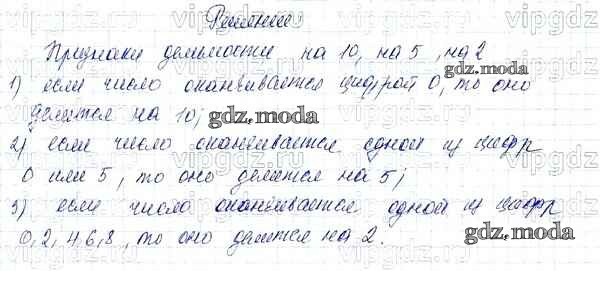 Решение:
Признаки делимости на 10, на 5, на 2
1) если число оканчивается цифрой 0, то оно
делится на 10;
2) если число оканчивается одной из цифр
0 или 5, то оно делится на 5;
3) если число оканчивается одной из цифр
0, 2, 4, 6, 8, то оно делится на 2.
gdz.moda
gdz.moda
gdz.moda
gdz.moda
vipgdz.ru
vipgdz.ru
vipgdz.ru
vipgdz.ru